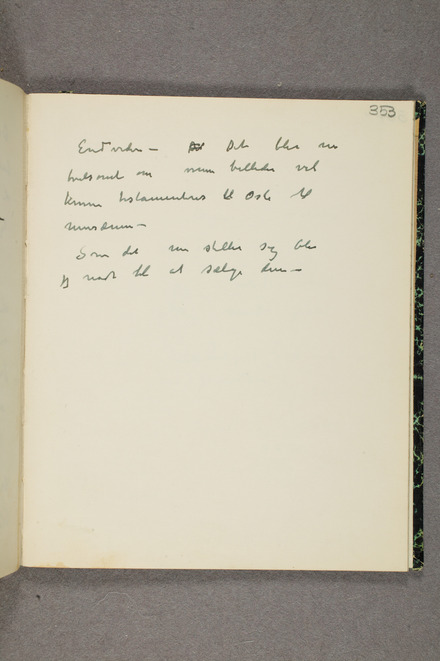 353
Endvidere – Det blir nu
tvilsomt om mine billeder vil
kunne testamenteres til Oslo til
museum –
Som det nu stiller sig blir
jeg nødt til at sælge dem –